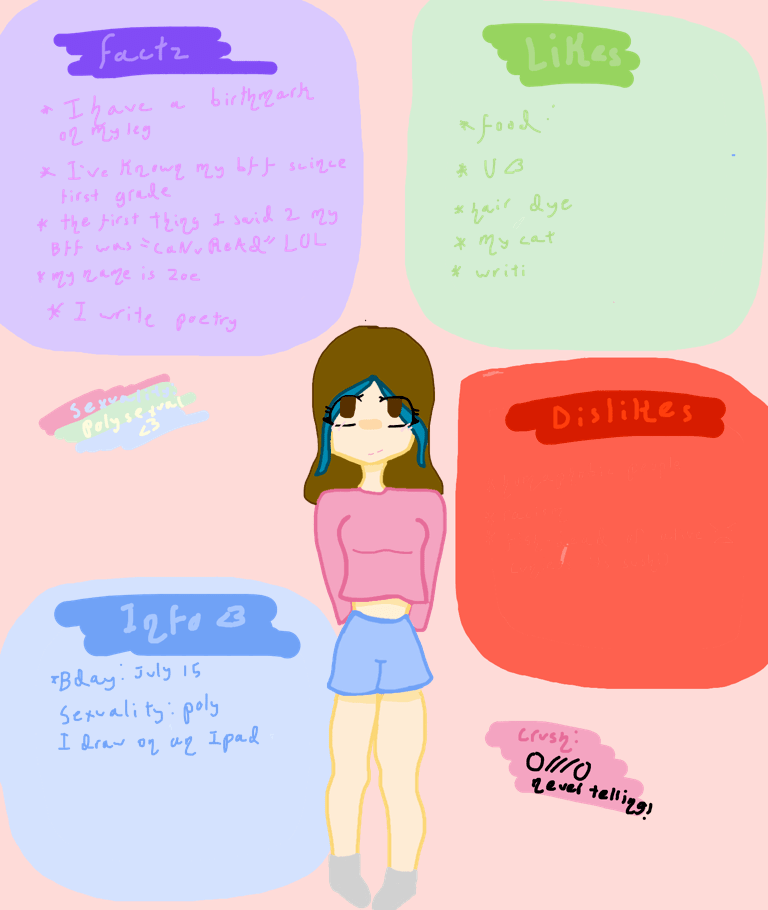 Factz
* I have a birthmark
on my leg
* I've known my bff scince
first grade
* the first thing I said 2 my
Bff was "caN u ReAd" LOL
* my name is zoe
* I write poetry
Likes
* food
* U <3
* hair dye
* my cat
* writi
Sexuality
Polysexual
<3
Dislikes
Info <3
*Bday: July 15
Sexuality: poly
I draw on an Ipad
Crush:
O////O
never telling!